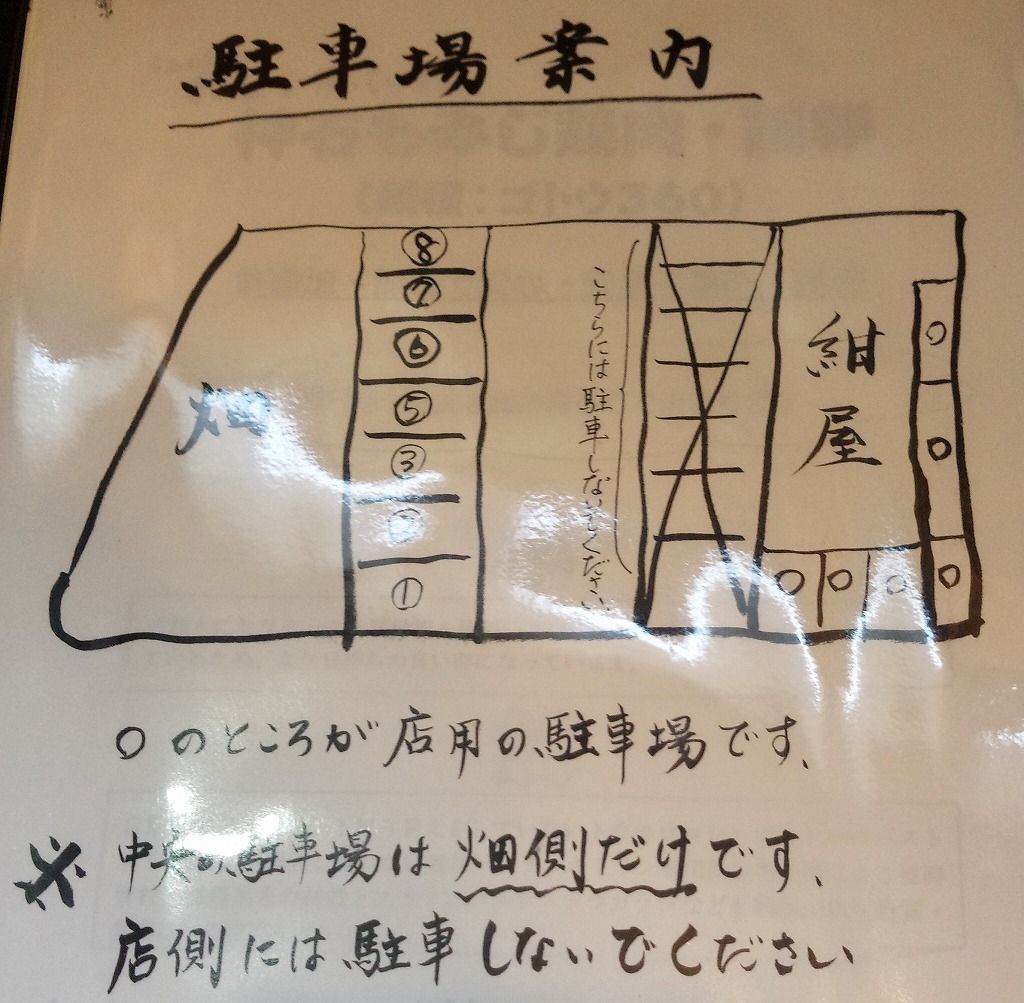 駐車場案内
⑧
⑦
⑥
⑤
③
②
①
畑
こちらには駐車しないでください
紺屋
○
○
○
○
○
○
○のところが店用の駐車場です、
※中央の駐車場は畑側だけです、
店側には駐車しないでください